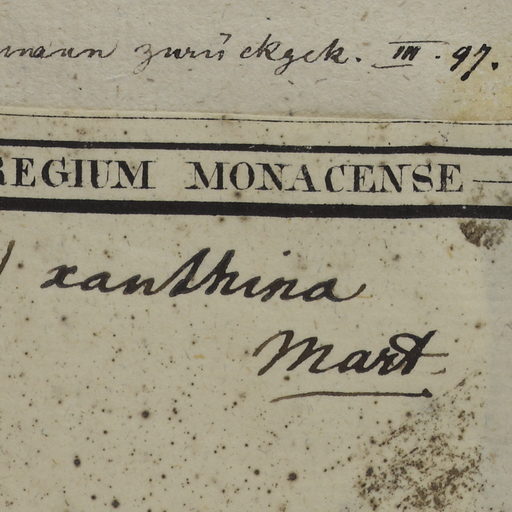 mann zurückgek. III. 97.
REGIUM MONACENSE
xanthina
Mart